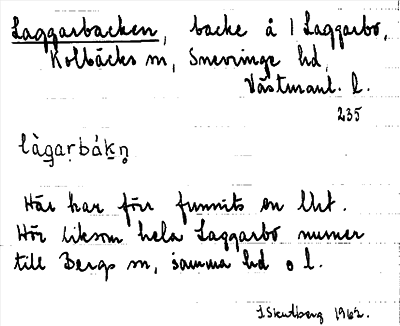 Laggarbacken, backe å 1 Laggarbo,
Kolbäcks sn, Snevringe hd,
Västmanl. l.
235
làg̱aṛbákn̥
Här har förr funnits en lht.
Hör liksom hela Laggarbo numer
till Bergs sn, samma hd o l.
1962.